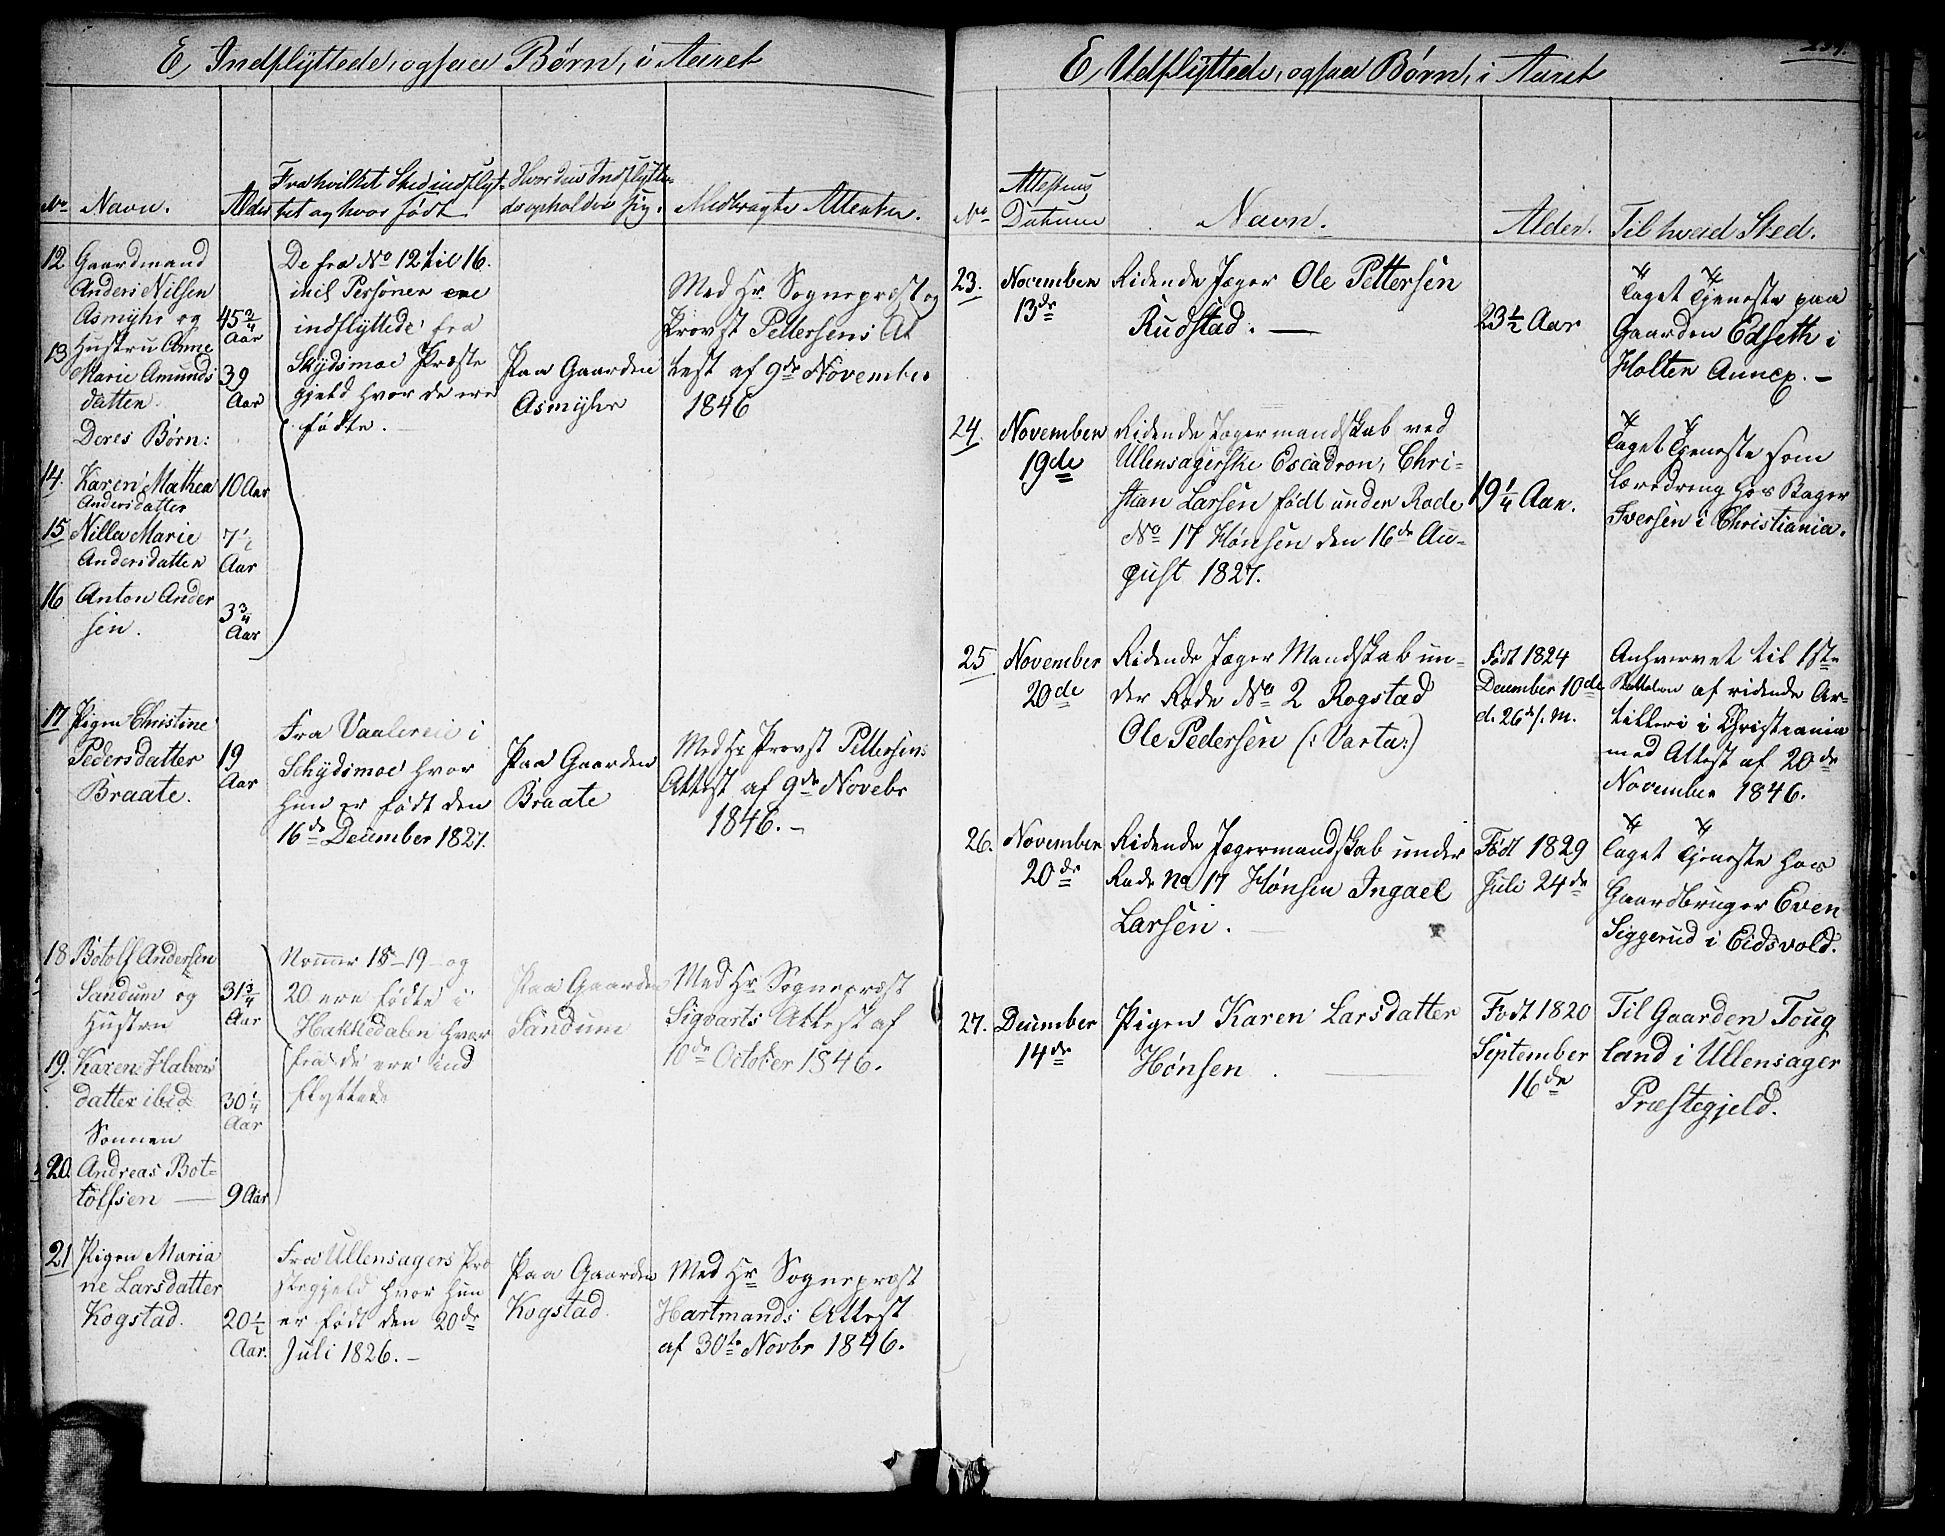 E Indflyttede, ogsaa Børn, i Aaret
No Navn. Alder Fra hvilket Sted indflyt- Hvor den Indflytte- Medbragte Attester.
tet og hvor født de opholder sig.
12 Gaardmand
Anders Nilsen
Asmyhr og 45 3/4 Aar
13 Hustru Anne
Marie Amunds 39
datter. Aar
Deres Børn:
14. Karen Mathea 10 Aar
Andersdatter
15 Nille Marie 7 1/2
Andersdatter Aar
16 Anton Ander 3 3/4
sen. Aar
De fra No 12 til 16.
incl Personer ere
indflyttede fra
Skydsmoe Præste
gjeld hvor de ere
fødte.
Paa Gaarden
Asmyhr
Med Hr. Sognepræst og
Provst Pettersens At
test af 9de November
1846
17 Pigen Christine
Pedersdatter 19
Braate. Aar
Fra Vaalereie i
Schydsmoe hvor
hun er født den
16de December 1827.
Paa Gaarden
Braate
Med Hr Provst Pettersens
Attest af 9de Novebr
1846. –
18 Botolf Andersen
Sandum og 31 3/4
Hustru Aar
19. Karen Halvors
datter ibid 30 1/4
Sønnen Aar
20. Andreas Bot-
tolfsen — 9 Aar
Nommer 18–19 – og
20 ere fødte i
Hakkedalen hvor
fra de ere ind
flyttede
Paa Gaarden
Sandum
Med Hr Sognepræst
Sigvarts Attest af
10de October 1846.
21 Pigen Maria
ne Larsdatter
Kogstad. 20 1/2
Aar.
Fra Ullensagers Præ
stegjeld hvor hun
er født den 20de
Juli 1826. –
Paa Gaarden
Kogstad.
Med Hr Sognepræst
Hartmands Attest
af 30te Novbr 1846.
E Udflyttede, ogsaa Børn, i Aaret
Attestens
No Datum Navn. Alder. Til hvad Sted.
23. November Ridende Jæger Ole Pettersen
13de Rudstad. — 23 1/2 Aar
Taget Tjeneste paa
Gaarden Edseth i
Holter Annex. –
24. November Ridende Jægermandskab ved
19de Ullensagerske Escadron, Chri-
stian Larsen født under Rode 19 1/4 Aar.
No 17 Hønsen den 16de Au-
gust 1827.
Taget Tjeneste som
Læredreng hos Bager
Iversen i Christiania.
25 November Ridende Jæger Mandskab un-
20de der Rode No 2 Rogstad
Ole Pedersen (: Varta:)
Født 1824
December 10de
d. 26 ds. M.
Anhvervet til 1ste
Battalion af ridende Ar-
tilleri i Christiania
med Attest af 20de
November 1846.
26. November Ridende Jægermandskab under
20de Rode No 17 Hønsen Ingael
Larsen.
Født 1829
Juli 24de
Taget Tjeneste hos
Gaardbruger Even
Siggerud i Eidsvold.
27. December Pigen Karen Larsdatter
14de Hønsen.
Født 1820
September
16de
Til Gaarden Toug
land i Ullensager
Præstegjeld.